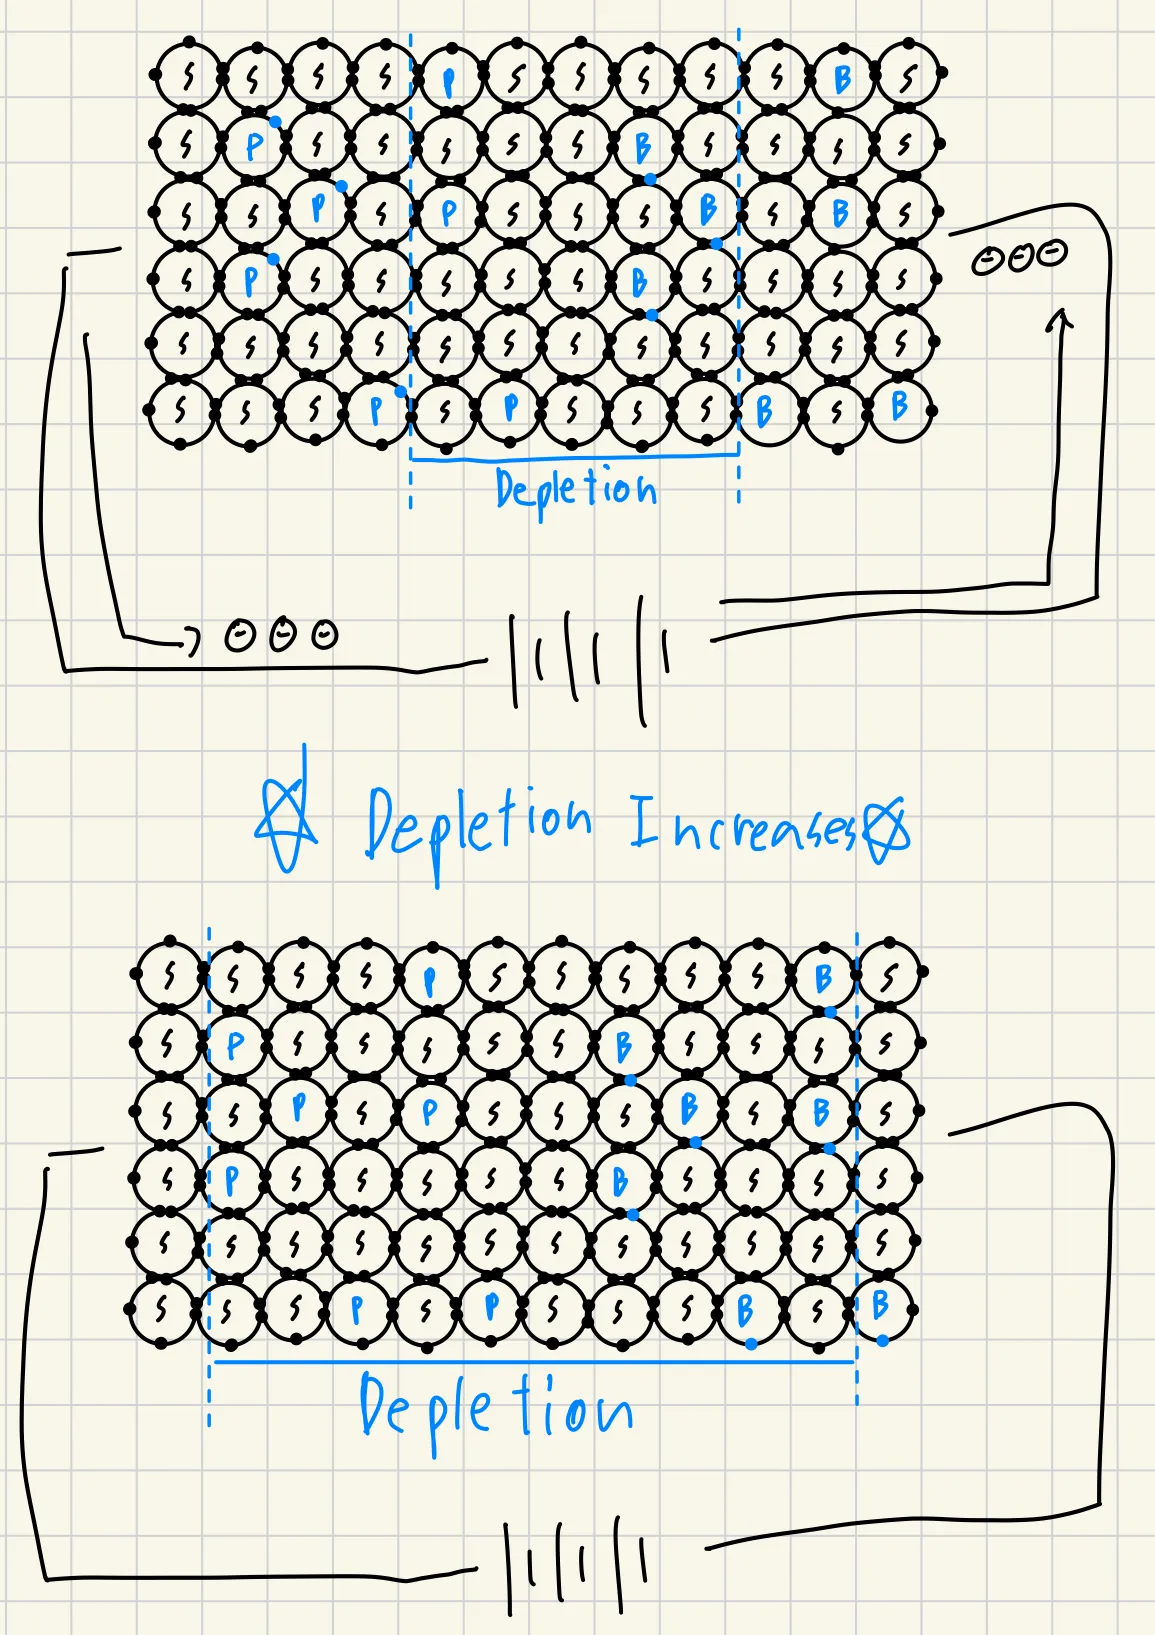 S S S S P S S S S S B S
S P S S S S S B S S S S
S S P S P S S S B S B S
S P S S S S S B S S S S
S S S S S S S S S S S S
S S S P S P S S S B S B
Depletion
- - -
- - -
Depletion Increases
S S S S P S S S S S B S
S P S S S S S B S S S S
S S P S P S S S B S B S
S P S S S S S B S S S S
S S S S S S S S S S S S
S S S P S P S S S B S B
Depletion